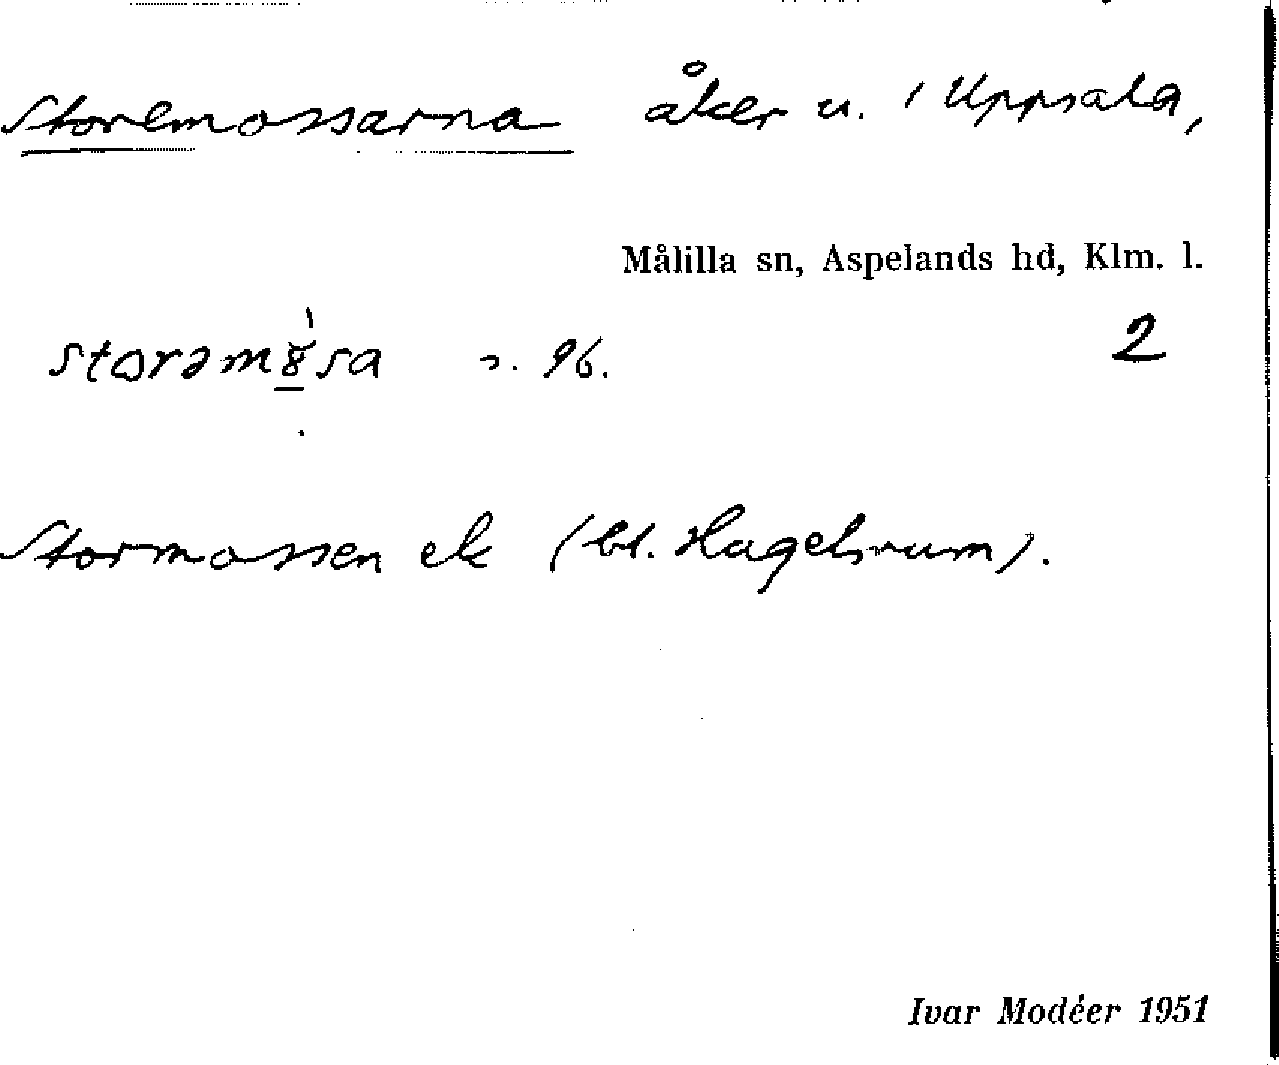 Storemossarna åker u. 1 Uppsala,
Målilla sn, Aspelands hd, Klm. l.
2
s. 96.
Stormossen ek (bl. Hagelsrum).
Ivar Modéer 1951